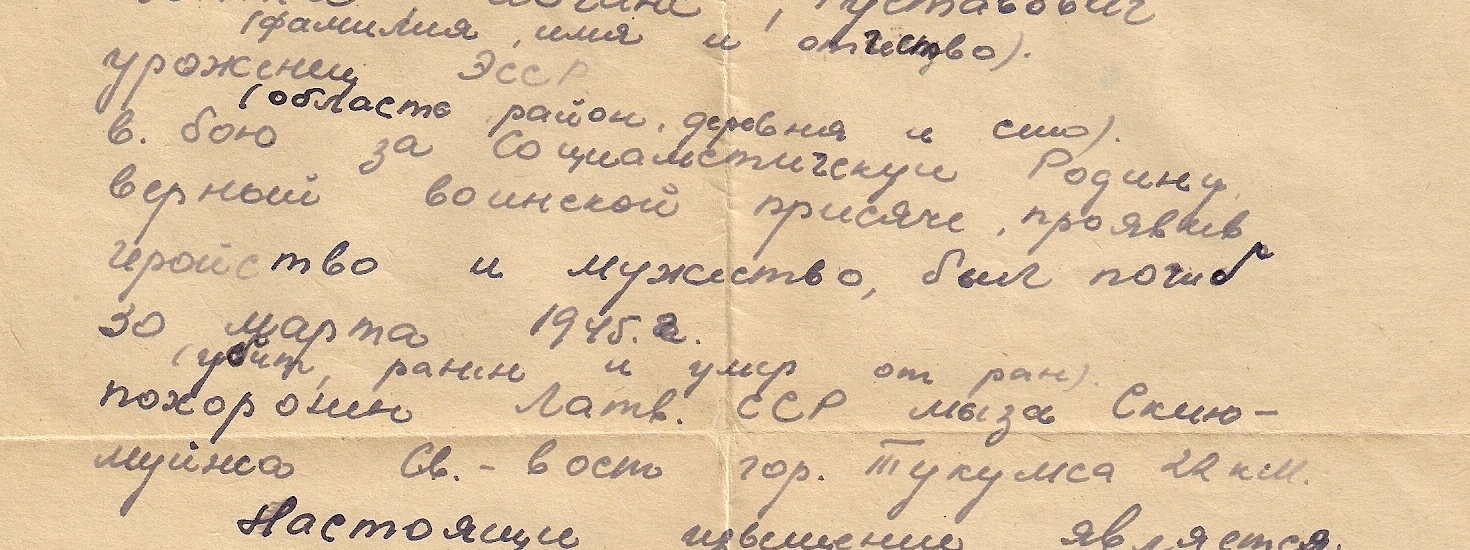 Густавович
(фамилия, имя и отчество).
уроженец ЭССР
(область район, деревня и село).
в. бою за Социалистическую Родину,
верный воинской присяге, проявив
геройство и мужество, был погиб
30 марта 1945.г.
(убит, ранен и умер от ран).
похоронен Латв. ССР мыза Скию-
муйжа Св. - вост гор. Тукумса 22 км.
Настоящее извещение является